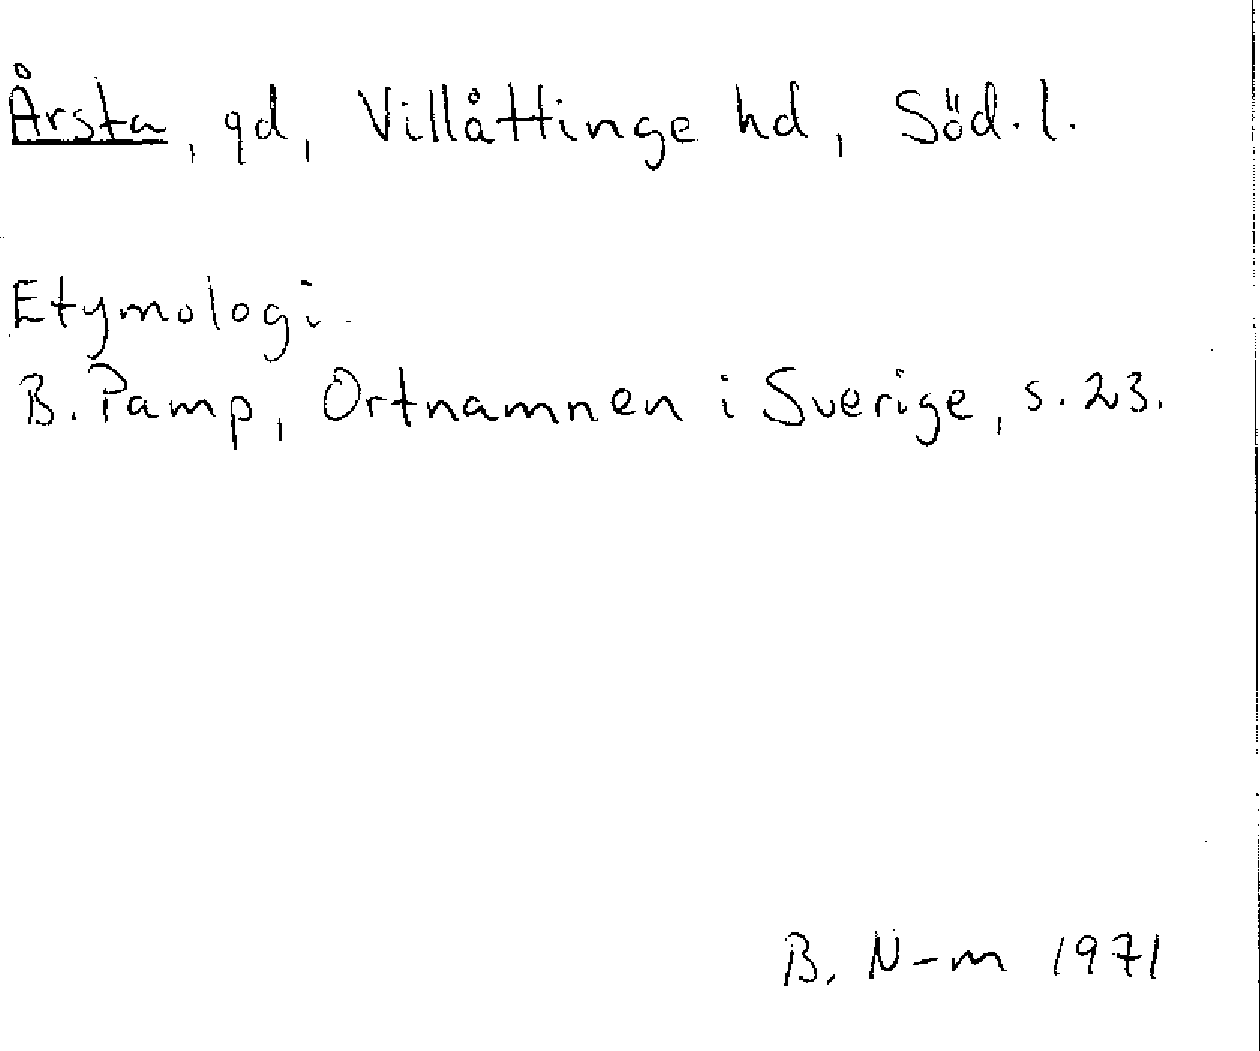 Årsta, gd, Villåttinge hd, Söd.l.
Etymologi.
B. Pamp, Ortnamnen i Sverige, s. 23.
B. N-m 1971